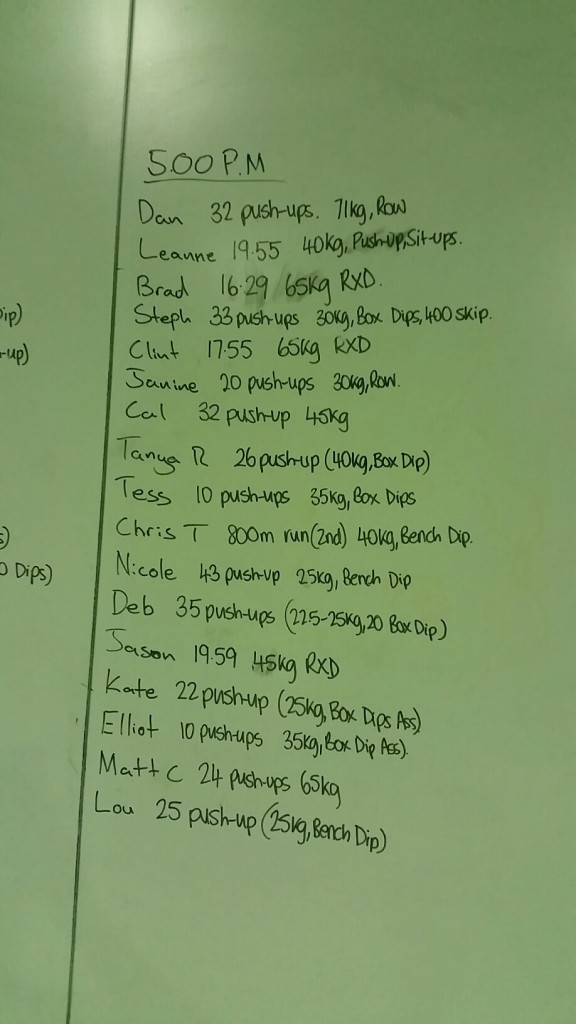 5.00 P.M
Dan 32 push-ups. 71kg, Row
Leanne 19.55 40kg, Push-up, Sit-ups.
Brad 16.29 65kg RXD.
Steph 33 push-ups 30kg, Box Dips, 400 skip.
Clint 17.55 65kg RXD
Janine 20 push-ups 30kg, Row.
Cal 32 push-up 45kg
Tanya R 26 push-up (40kg, Box Dip)
Tess 10 push-ups 35kg, Box Dips
Chris T 800m run (2nd) 40kg, Bench Dip.
Nicole 43 push-up 25kg, Bench Dip
Deb 35 push-ups (22.5-25kg, 20 Box Dip)
Jason 19.59 45kg RXD
Kate 22 push-up (25kg, Box Dips Ass)
Elliot 10 push-ups 35kg, Box Dip Ass).
Matt C 24 push-ups 65kg
Lou 25 push-up (25kg, Bench Dip)
ip)
-up)
s)
0 Dips)